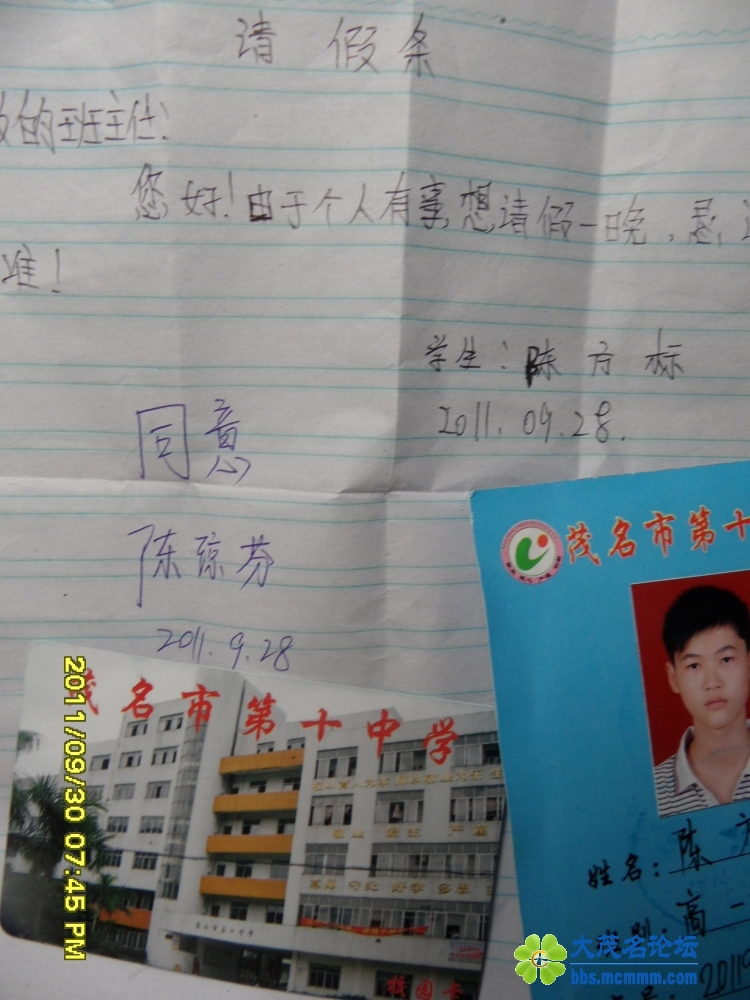 请假条
敬的班主任:
您好!由于个人有事,想请假一晚,恳请
准!
学生:陈方标
2011.09.28.
同意
陈琼芬
2011.9.28
茂名市第十
姓名:陈方
班别:高一
2011/09/30 07:45 PM
茂名市第十中学
校园卡
大茂名论坛
bbs.mcmmm.com